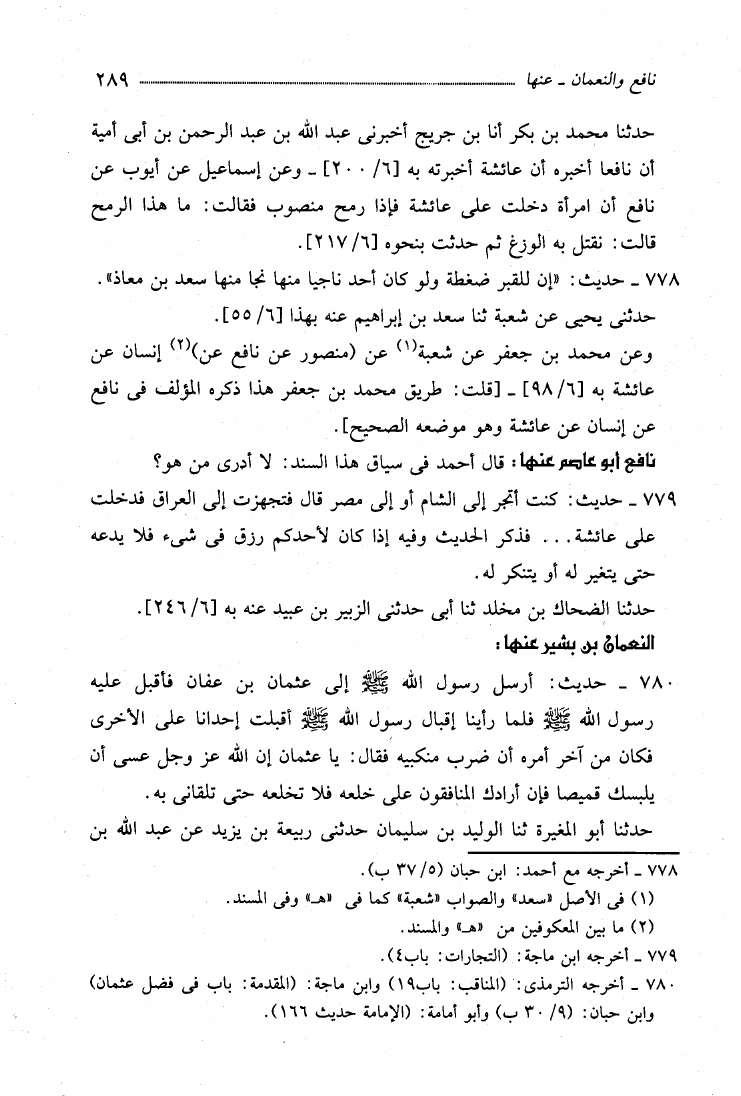 نافع والنعمان ـ عنها ٢٨٩
حدثنا محمد بن بكر أنا بن جريج أخبرنى عبد الله بن عبد الرحمن بن أبى أمية
أن نافعا أخبره أن عائشة أخبرته به [٦/ ٢٠٠] ـ وعن إسماعيل عن أيوب عن
نافع أن امرأة دخلت على عائشة فإذا رمح منصوب فقالت: ما هذا الرمح
قالت: نقتل به الوزغ ثم حدثت بنحوه [٦/ ٢١٧].
٧٧٨ ـ حديث: «إن للقبر ضغطة ولو كان أحد ناجيا منها نجا منها سعد بن معاذ».
حدثنى يحيى عن شعبة ثنا سعد بن إبراهيم عنه بهذا [٦/ ٥٥].
وعن محمد بن جعفر عن شعبة(١) عن (منصور عن نافع عن)(٢) إنسان عن
عائشة به [٦/ ٩٨] ـ [قلت: طريق محمد بن جعفر هذا ذكره المؤلف فى نافع
عن إنسان عن عائشة وهو موضعه الصحيح].
نافع أبو عاصم عنها: قال أحمد فى سياق هذا السند: لا أدرى من هو؟
٧٧٩ ـ حديث: كنت أتجر إلى الشام أو إلى مصر قال فتجهزت إلى العراق فدخلت
على عائشة... فذكر الحديث وفيه إذا كان لأحدكم رزق فى شىء فلا يدعه
حتى يتغير له أو يتنكر له.
حدثنا الضحاك بن مخلد ثنا أبى حدثنى الزبير بن عبيد عنه به [٦/ ٢٤٦].
النعمان بن بشير عنها:
٧٨٠ ـ حديث: أرسل رسول الله ﷺ إلى عثمان بن عفان فأقبل عليه
رسول الله ﷺ فلما رأينا إقبال رسول الله ﷺ أقبلت إحدانا على الأخرى
فكان من آخر أمره أن ضرب منكبيه فقال: يا عثمان إن الله عز وجل عسى أن
يلبسك قميصا فإن أرادك المنافقون على خلعه فلا تخلعه حتى تلقانى به.
حدثنا أبو المغيرة ثنا الوليد بن سليمان حدثنى ربيعة بن يزيد عن عبد الله بن
٧٧٨ ـ أخرجه مع أحمد: ابن حبان (٥/ ٣٧ ب).
(١) فى الأصل «سعد» والصواب «شعبة» كما فى «هـ» وفى المسند.
(٢) ما بين المعكوفين من «هـ» والمسند.
٧٧٩ ـ أخرجه ابن ماجة: (التجارات: باب٤).
٧٨٠ ـ أخرجه الترمذى: (المناقب: باب١٩) وابن ماجة: (المقدمة: باب فى فضل عثمان)
وابن حبان: (٩/ ٣٠ ب) وأبو أمامة: (الإمامة حديث ١٦٦).